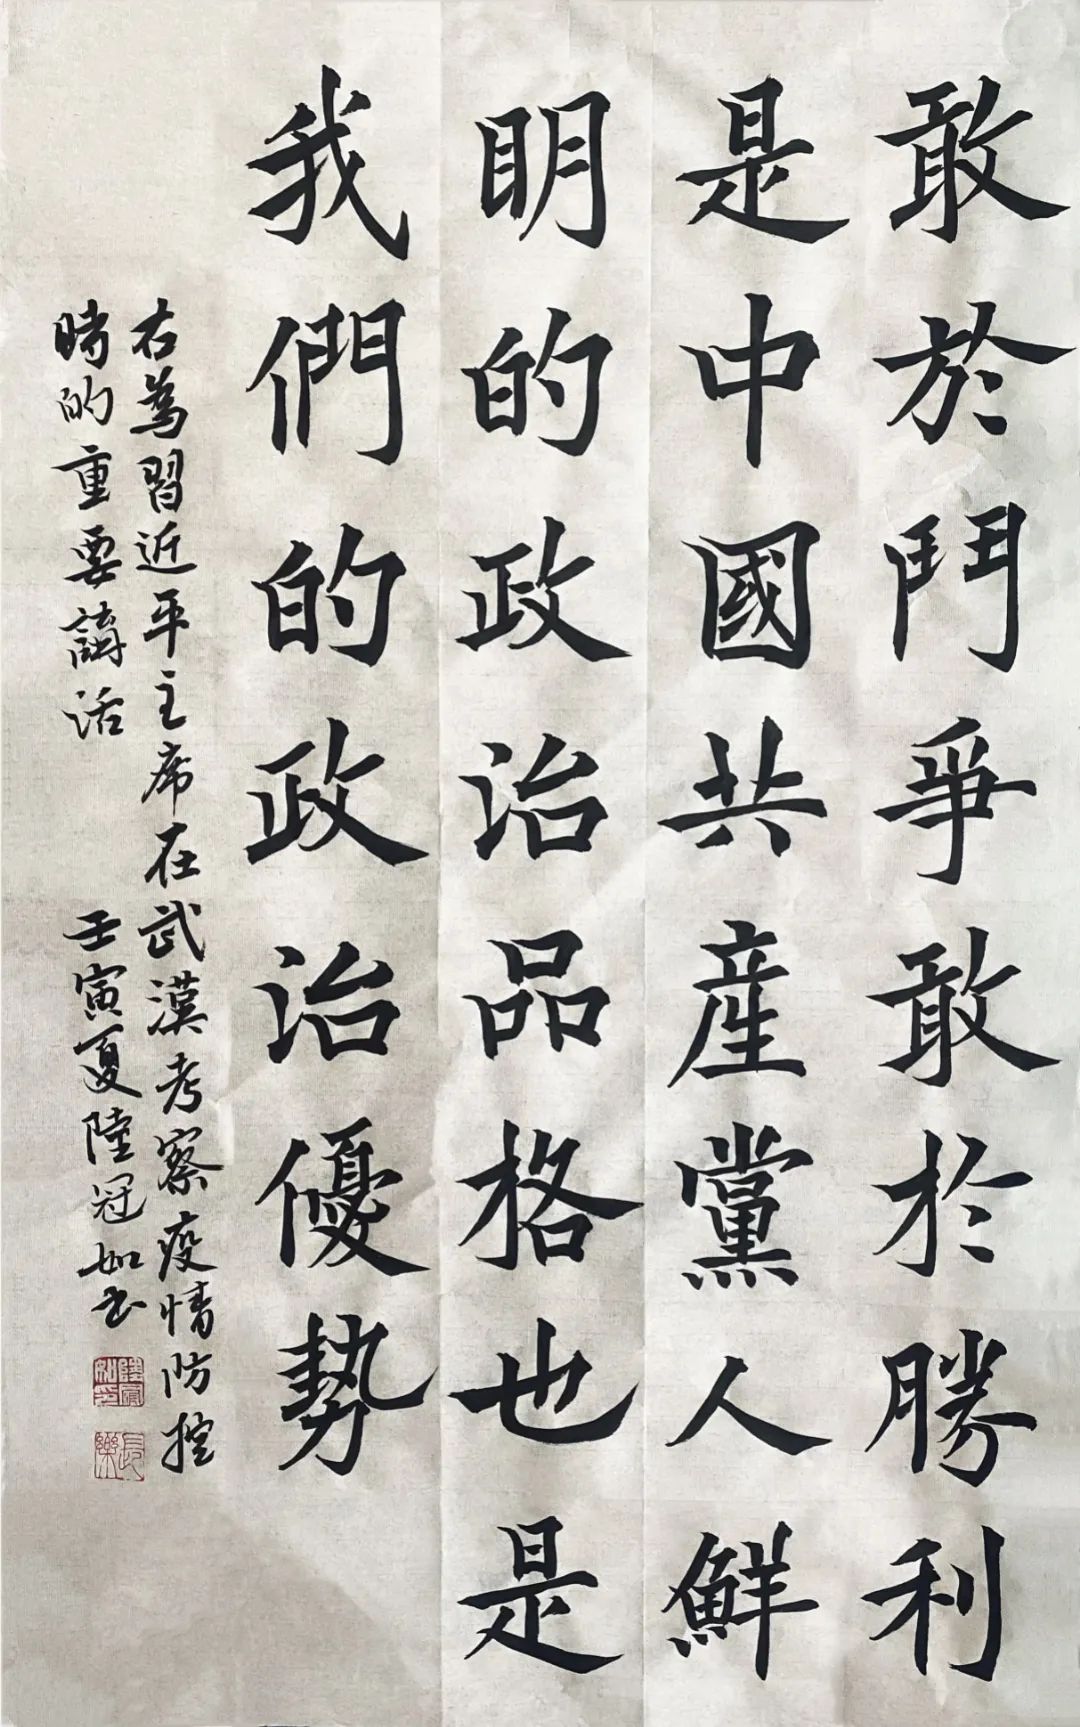 敢於鬥爭敢於勝利
是中國共產黨人鮮
明的政治品格也是
我們的政治優勢
右為習近平主席在武漢考察疫情防控
時的重要講話
壬寅夏陸冠如书
陸冠如印
長樂